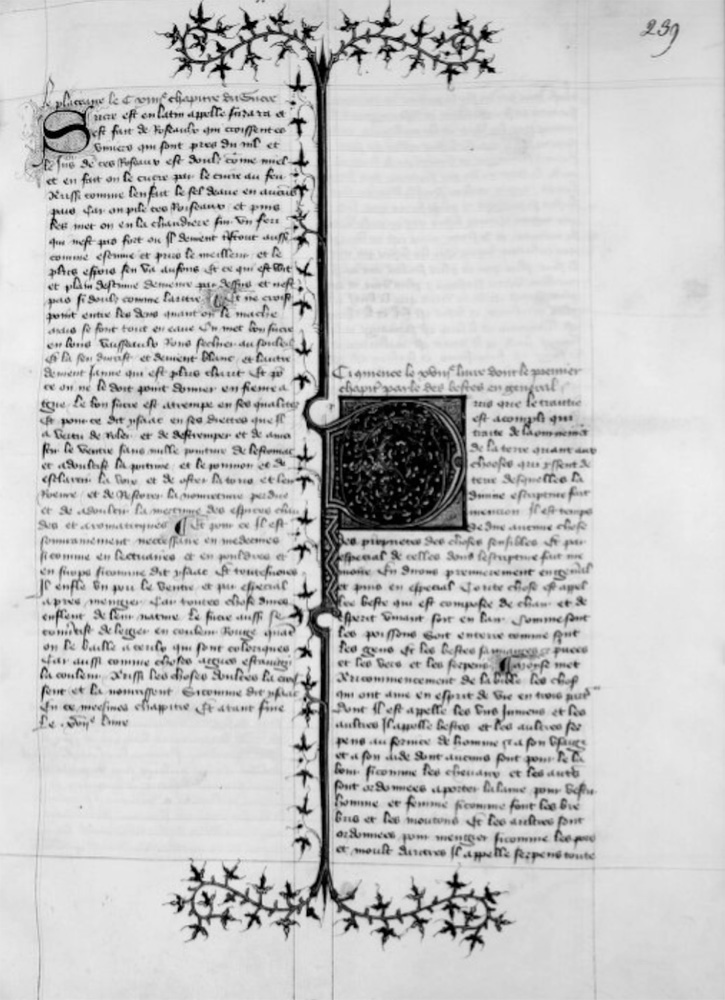 239
le chapitre du sucre
Sucre est en latin appelle et
est fait de Roseaulx qui croissent es
viviers qui sont pres du nil et
le Jus de ces Roseaux est doulx come miel
et en fait on le sucre par le cuire au feu
Aussi comme len fait le sel deaue en aucuns
pais Car on pile ces Roseaux et puis
les met on en la chaudiere sur un feu
qui nest pas fort ou Il devient aussi
comme escume et puis le meilleur et le
plus espois sen va au fons Et ce qui est
et plain descume demeure par dessus et nest
pas si doulx comme lautre Et ne croist
point entre les dens quant on le mache
mais se font tout en eaue On met bon sucre
en bons vaisseaulx Rons sechier au souleil
Et la sen durcist et devient blanc et lautre
devient jaune qui est plus chault Et po
ce on ne le doit point donner en fievre a
gue Le bon sucre est atrempe en ses qualites
Et pour ce dit ysaac en ses diettes que Il
a vertu de et de destremper et de
le ventre sans nulle pointure de lestomac
et adoulcist la poitrine et le poumon et de
esclarcir la voix et de oster la toux et
et de Restorer la nourreture perdue
et de adoulcir la des espices
des et aromatiques Et pour ce Il est
souverainement necessaire en medecines
sicomme en lectuaires et en pouldres et
en sirops sicomme dit ysaac Et toutesvoies
Il enfle un pou le ventre et par especial
apres mengier Car toutes choses doulces
enflent de leur nature Le sucre aussi se
de legier en couleur Rouge quant
on le baille a ceulx qui sont coleriques
Car aussi comme choses aigues
la couleur Aussi les choses doulces la
sent et la nourrissent Sicomme dit ysaac
En ce mesmes chappitre Et atant fine
Le livre
Cy comence le livre dont le premier
chapit parle des bestes en general
Puis que le traictie
est acompli qui
traite de laornement
de la terre quant aux
choses qui yssent de
terre desquelles la
divine escripture fait
mencion Il est temps
de dire aucune chose
des proprietes des choses sensibles Et par
especial de celles dont lescripture fait me
moire En dirons premierement en general
et puis en especial Toute chose est appel
lee beste qui est composee de char et de
esperit vivant soit en lair Comme sont
les poissons Soit en terre comme sont
les gens Et les bestes sauvaiges et privees
et les vers et les serpens met
Au commencement de la bible les chos
qui ont ame en esprit de vie en trois pars
Dont Il est appelle les uns Jumens et les
aultres Il appelle bestes et les aultres ser
pens au service de homme et a son usaige
et a son aide dont aucuns sont pour le la
bour sicomme les chevaux et les aults
sont ordonnees a porter la laine pour vestir
homme et femme sicomme sont les bre
bis et les moutons Et les aultres sont
ordonnees pour mengier sicomme les porcs
et moult dautres Il appelle serpens toute